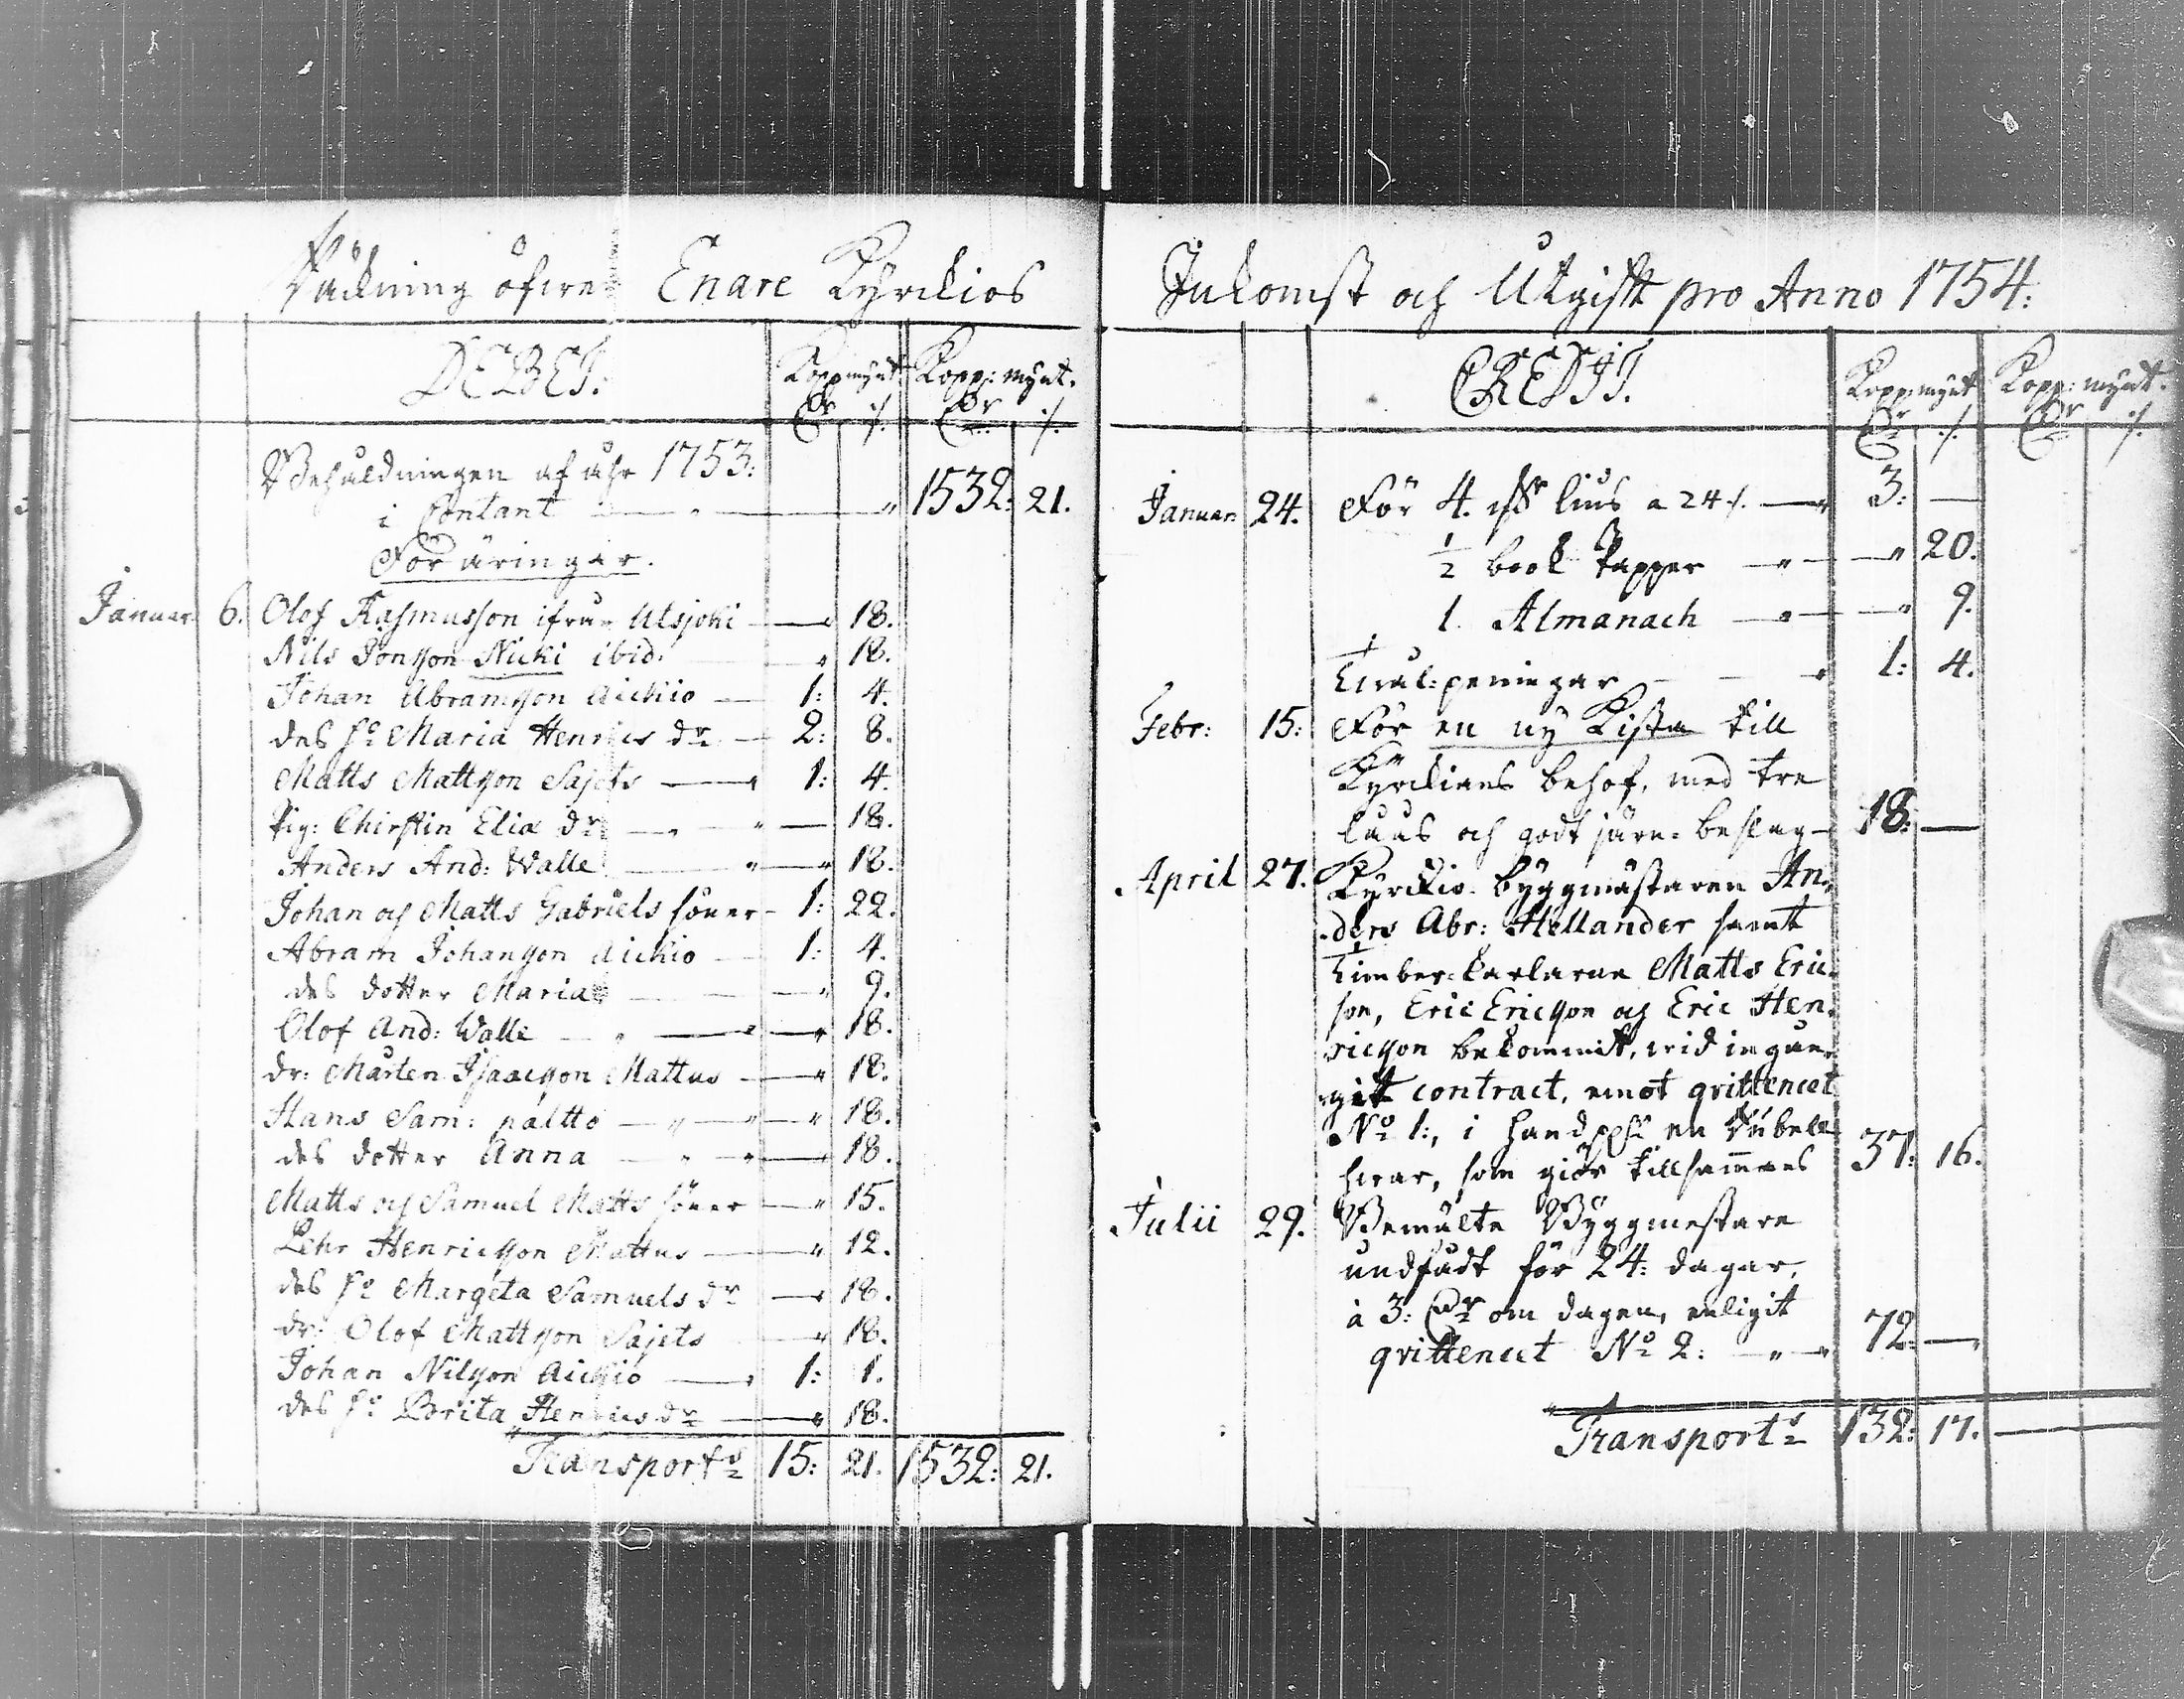 Räckning öfver Enare Kyrckios
DEBET. Koppmynt. Kopp: mynt.
Dr ./. Dr ./.
Behåldningen af åhr 1753:
i Contant 1532: 21.
Föräringar.
Januar. 6. Olof Rasmusson ifrån Utsjoki 18.
Nils Jonsson Nicki ibid: 18.
Johan Abramsson Aickio 1: 4.
des ho Maria Henrics dr 2: 8.
Matts Mattsson Sajets 1: 4.
Pig: Chirstin Eliæ dr 18.
Anders And: Walle 18.
Johan och Matts Gabriels söner 1: 22.
Abram Johansson Aickio 1: 4.
des dotter Maria 9.
Olof And: Walle 18.
dr: Mårten Isaacsson Mattus 18.
Hans Sam: paltto 18.
des dotter Anna 18.
Matts och Samuel Matts söner 15.
Pehr Henricsson Mattus 12.
des ho Margeta Samuels dr 18.
dr: Olof Mattsson Sajets 18.
Johan Nilsson Aickio 1: 1.
des ho Brita Henrics dr 18.
Transport 15: 21. 1532: 21.
Inkomst och Utgifft pro Anno 1754:
CREDIT. Kopp: mynt Kopp: mynt.
Dr ./. Dr ./.
Januar. 24. För 4. lius a 24 ./. 3: —
1/2 book Papper 20.
1. Almanach 9.
Tiäl: peningar 1: 4.
Febr: 15: För en ny Kista till
Kyrckians behof, med tre
låås och godt järn-beslag 18: —
April 27. Kyrckio-byggmästaren An-
ders Abr: Hellander samt
Timber-karlarne Matts Eric-
son, Eric Ericsson och Eric Hen-
ricsson bekommit, vid ingån-
git contract, emot qvittencet
No 1:, i hand en Dubell
hvar, som giör tillsammans 37: 16.
Julii 29. Bemälte Byggmestare
undfådt för 24: dagar,
à 3: Dr om dagen, enligit
qvittencet No 2: 72: —
Transport 132: 17. —